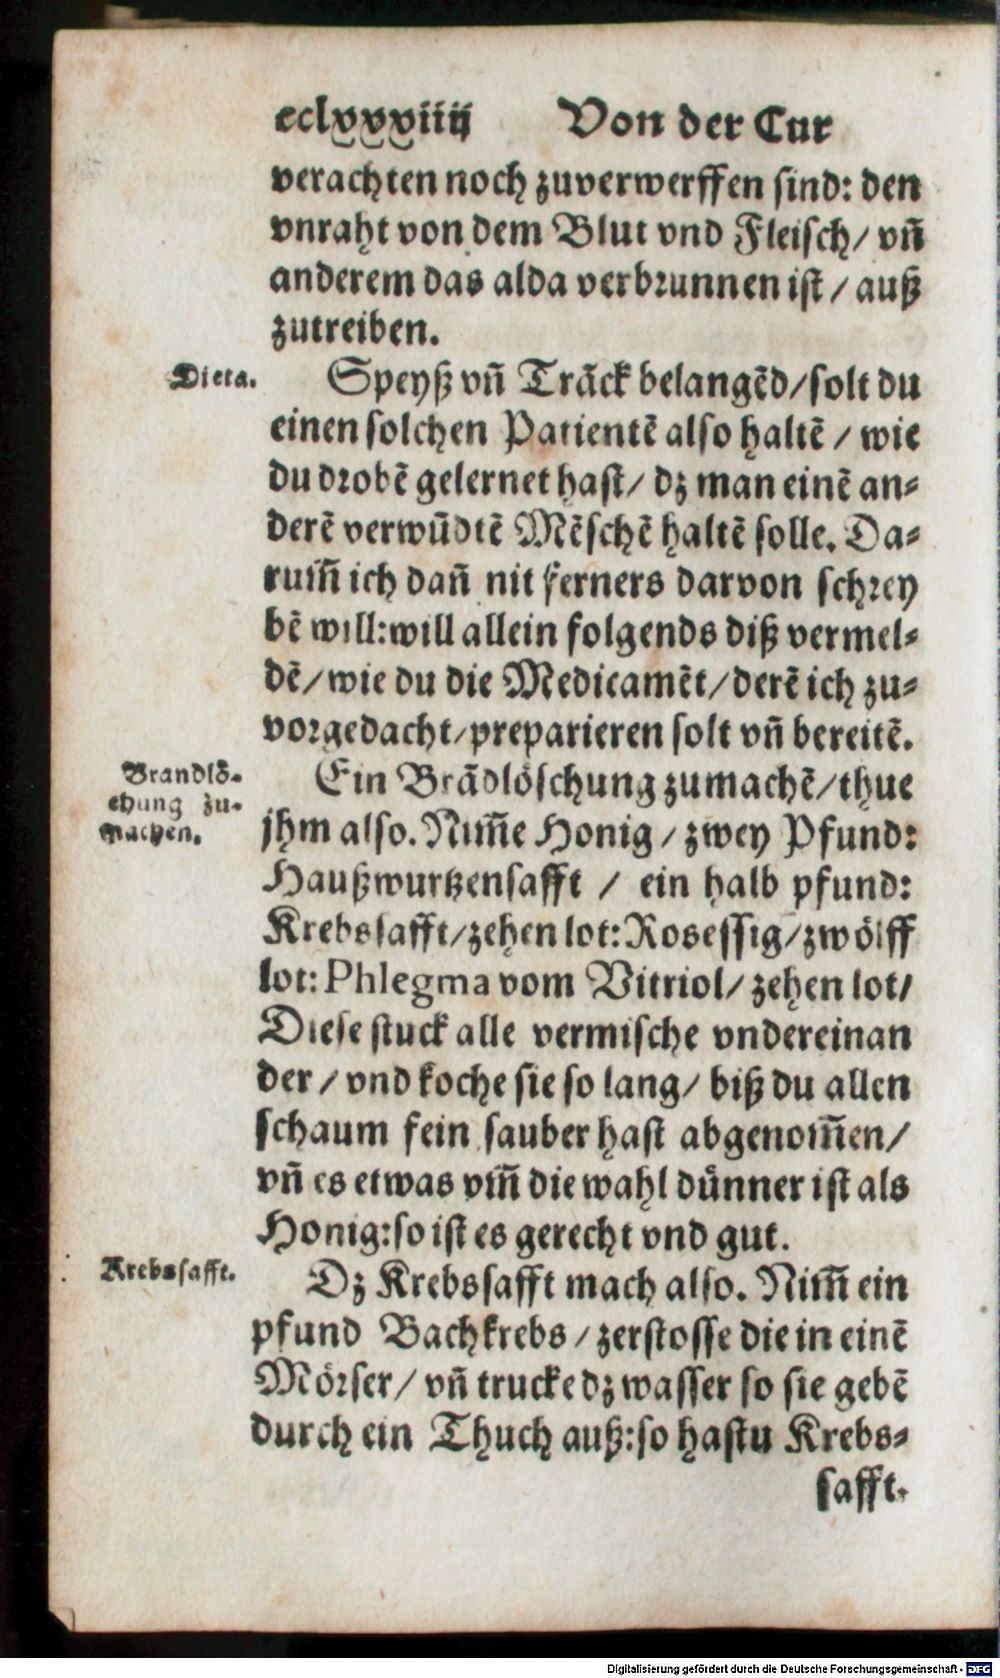 cclxxxiiij Von der Cur
verachten noch zuverwerffen sind: den
vnraht von dem Blut vnd Fleisch/ vñ
anderem das alda verbrunnen ist/ auß
zutreiben.
Dieta.
Speyß vñ Trãck belangẽd/solt du
einen solchen Patientẽ also haltẽ/ wie
du drobẽ gelernet hast/ dz man einẽ an=
derẽ verwũdtẽ Mẽschẽ haltẽ solle. Da=
rum̃ ich dañ nit ferners darvon schrey
bẽ will: will allein folgends diß vermel=
dẽ/wie du die Medicamẽt/derẽ ich zu=
vorgedacht/preparieren solt vñ bereitẽ.
Brandlö=
chung zu=
machen.
Ein Brãdlöschung zumachẽ/thue
jhm also. Nim̃e Honig/ zwey Pfund:
Haußwurtzensafft/ ein halb pfund:
Krebssafft/zehen lot: Rosessig/zwölff
lot: Phlegma vom Vitriol/ zehen lot/
Diese stuck alle vermische vndereinan
der/ vnd koche sie so lang/ biß du allen
schaum fein sauber hast abgenom̃en/
vñ es etwas vm̃ die wahl dünner ist als
Honig: so ist es gerecht vnd gut.
Krebssafft.
Dz Krebssafft mach also. Nim̃ ein
pfund Bachkrebs/ zerstosse die in einẽ
Mörser/ vñ trucke dz wasser so sie gebẽ
durch ein Thuch auß: so hastu Krebs=
safft.
Digitalisierung gefördert durch die Deutsche Forschungsgemeinschaft - DFG